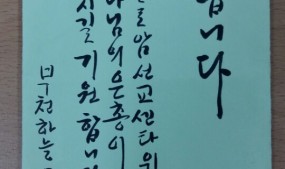 니다
암 선교센타 위
나님의 은총이
시길 기원합니다
부천하늘